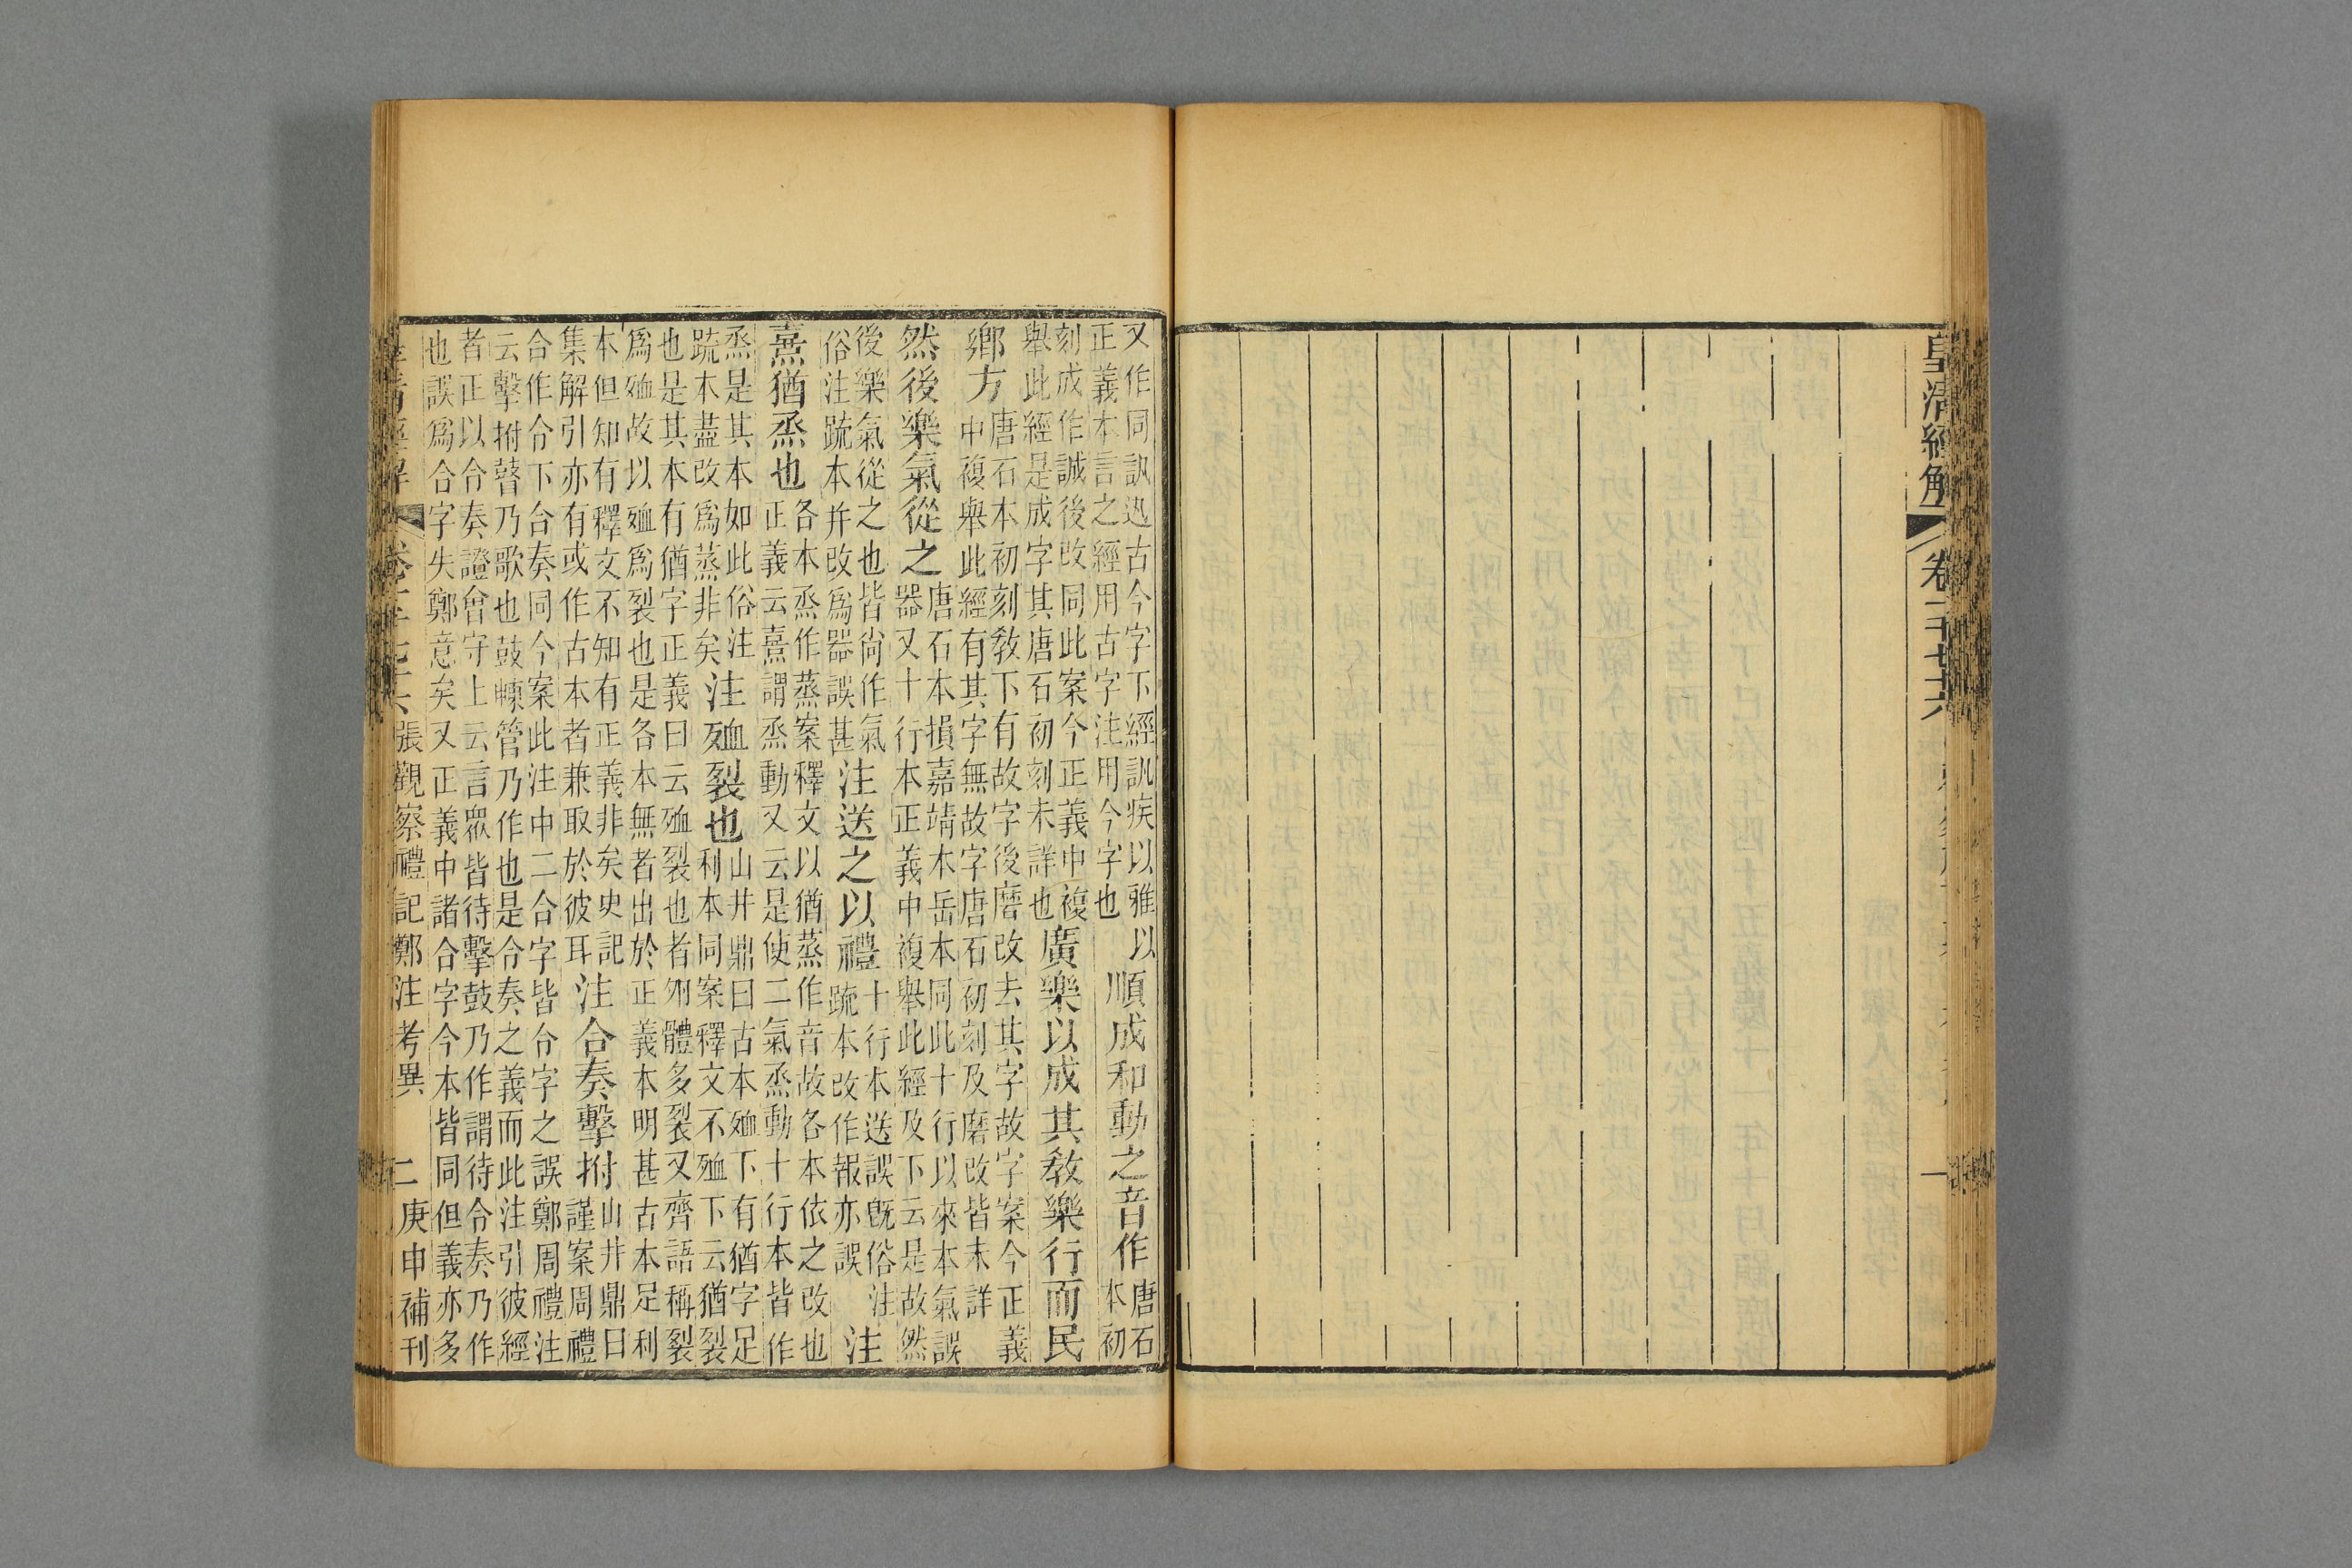 皇清經解
卷一千七十六
一
又作同訊迅古今字下經訊疾以雅
正義本言之經用古字注用今字也
以順成和動之音作
唐石
本初
刻成作誠後改同此案今正義中複
舉此經是成字其唐石初刻未詳也
廣樂以成其教樂行而民
鄉方
唐石本初刻教下有故字後磨改去其字故字案今正義
中複舉此經有其字無故字唐石初刻及磨改皆未詳
然後樂氣從之
唐石本損嘉靖本岳本同此十行以來本氣誤
器又十行本正義中複舉此經及下云是故然
後樂氣從之也皆尚作氣
俗注疏本幷改爲器誤甚
注送之以禮
十行本送誤旣俗注
疏本改作報亦誤
注
熹猶烝也
各本烝作蒸案釋文以猶蒸作音故各本依之改也
正義云熹謂烝動又云是使二氣烝動十行本皆作
烝是其本如此俗注
疏本盡改爲蒸非矣
注殈裂也
山井鼎曰古本殈下有猶字足
利本同案釋文不殈下云猶裂
也是其本有猶字正義曰云殈裂也者夘體多裂又齊語稱裂
爲殈故以殈爲裂也是各本無者出於正義本明甚古本足利
本但知有釋文不知有正義非矣史記
集解引亦有或作古本者兼取於彼耳
注合奏擊拊
山井鼎曰
謹案周禮
合作令下合奏同今案此注中二合字皆令字之誤鄭周禮注
云擊拊瞽乃歌也鼓㯥管乃作也是合奏之義而此注引彼經
者正以合奏證會守上云言眾皆待擊鼓乃作謂待令奏乃作
也誤爲合字失鄭意矣又正義中諸合字今本皆同但義亦多
皇清經解
卷一千七十六
張觀察禮記鄭注考異
二
庚申補刊